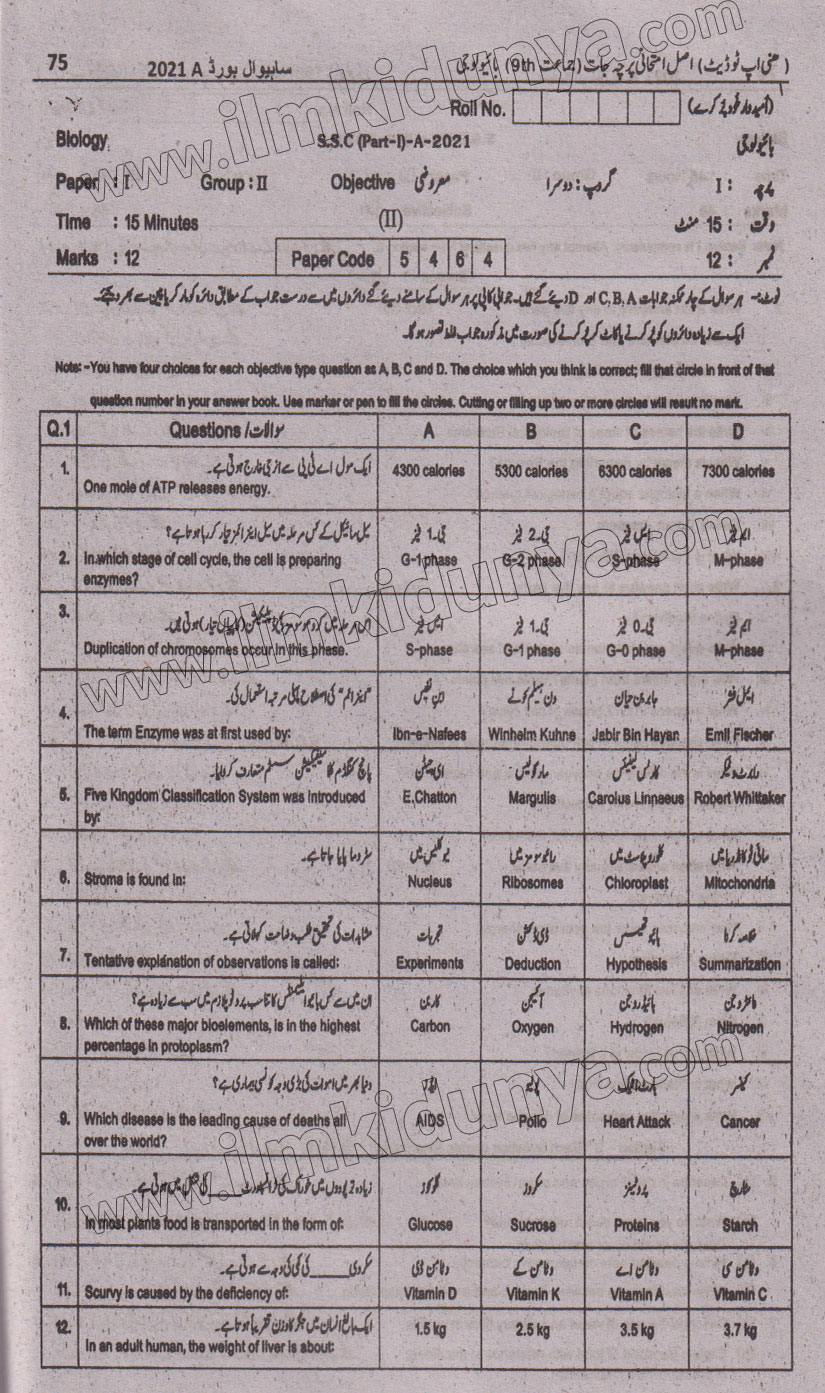 75 ساہیوال بورڈ 2021 A (ھنی اپ ٹو ڈیٹ) اصل امتحانی پرچہ جات (جماعت 9th) بائیولوجی
Roll No. (امیدوار خود پُر کرے)
Biology S.S.C (Part-I)-A-2021 بائیولوجی
Paper : I Group : II Objective معروضی گروپ : دوسرا پرچہ : I
Time : 15 Minutes (II) وقت : 15 منٹ
Marks : 12 Paper Code 5 4 6 4 نمبر : 12
نوٹ:- ہر سوال کے چار ممکنہ جوابات C, B, A اور D دیئے گئے ہیں۔ جوابی کاپی پر ہر سوال کے سامنے دیئے گئے دائروں میں سے درست جواب کے مطابق دائرہ کو مارکر یا پین سے بھر دیجئے۔
ایک سے زیادہ دائروں کو پُر کرنے یا کاٹ کر پُر کرنے کی صورت میں مذکورہ جواب غلط تصور ہو گا۔
Note: -You have four choices for each objective type question as A, B, C and D. The choice which you think is correct; fill that circle in front of that
question number in your answer book. Use marker or pen to fill the circles. Cutting or filling up two or more circles will result no mark.
Q.1 Questions / سوالات A B C D
1. ایک مول اے ٹی پی سے انرجی خارج ہوتی ہے۔
One mole of ATP releases energy. 4300 calories 5300 calories 6300 calories 7300 calories
سیل سائیکل کے کس مرحلہ میں سیل اینزائمز تیار کر رہا ہوتا ہے؟ جی-1 فیز جی-2 فیز ایس فیز ایم فیز
2. In which stage of cell cycle, the cell is preparing G-1 phase G-2 phase S-phase M-phase
enzymes?
3. اس مرحلہ میں کروموسومز کی ڈپلیکیشن (کاپیاں تیار) ہوتی ہیں۔ ایس فیز جی-1 فیز جی-0 فیز ایم فیز
Duplication of chromosomes occur in this phase. S-phase G-1 phase G-0 phase M-phase
"اینزائم" کی اصطلاح پہلی مرتبہ استعمال کی۔ ابن نفیس ون ہیلم کوہنے جابر بن حیان ایمل فشر
4. The term Enzyme was at first used by: Ibn-e-Nafees Winhelm Kuhne Jabir Bin Hayan Emil Fischer
پانچ کنگڈم کلاسیفیکیشن سسٹم متعارف کروایا۔ ای چیٹن مارگولس کارلس لینیئس رابرٹ وٹیکر
5. Five Kingdom Classification System was introduced E.Chatton Margulis Carolus Linnaeus Robert Whittaker
by:
سٹروما پایا جاتا ہے۔ نیوکلیس میں رائبوسومز میں کلوروپلاسٹ میں مائی ٹوکانڈریا میں
6. Stroma is found in: Nucleus Ribosomes Chloroplast Mitochondria
مشاہدات کی تحقیق طلب وضاحت کہلاتی ہے۔ تجربات ڈیڈکشن ہائپوتھیسس خلاصہ کرنا
7. Tentative explanation of observations is called: Experiments Deduction Hypothesis Summarization
ان میں سے کس بائیو ایلیمنٹس کا تناسب پروٹوپلازم میں سب سے زیادہ ہے؟ کاربن آکسیجن ہائیڈروجن نائٹروجن
8. Which of these major bioelements, is in the highest Carbon Oxygen Hydrogen Nitrogen
percentage in protoplasm?
دنیا بھر میں اموات کی بڑی وجہ کونسی بیماری ہے؟ ایڈز پولیو ہارٹ اٹیک کینسر
9. Which disease is the leading cause of deaths all AIDS Polio Heart Attack Cancer
over the world?
زیادہ تر پودوں میں خوراک کی ٹرانسپورٹ ____ کی شکل میں ہوتی ہے۔ گلوکوز سکروز پروٹینز سٹارچ
10. In most plants food is transported in the form of: Glucose Sucrose Proteins Starch
سکروی ____ کی کمی کی وجہ سے ہوتی ہے۔ وٹامن ڈی وٹامن کے وٹامن اے وٹامن سی
11. Scurvy is caused by the deficiency of: Vitamin D Vitamin K Vitamin A Vitamin C
12. ایک بالغ انسان میں جگر کا وزن تقریباً ہوتا ہے۔ 1.5 kg 2.5 kg 3.5 kg 3.7 kg
In an adult human, the weight of liver is about:
www.ilmkidunya.com
www.ilmkidunya.com
www.ilmkidunya.com